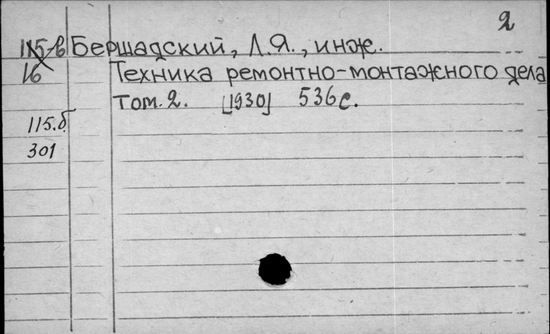 2
115-в Бершадский, Л.Я., инж.
16 Техника ремонтно-монтажного дела
том. 2. [1930] 536 с.
115.б
301